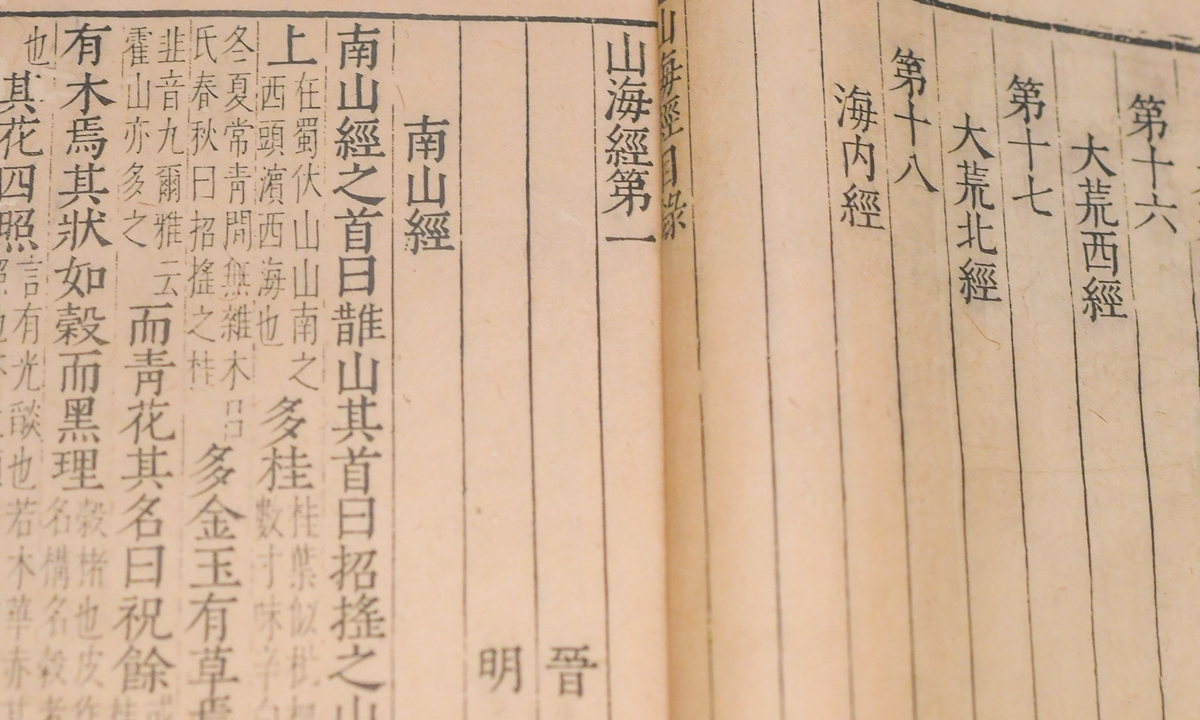 第十六
大荒西經
第十七
大荒北經
第十八
海内經
山海經目錄
山海經第一
晉
明
南山經
南山經之首曰䧿山其首曰招搖之山
上在蜀伏山山南之西頭濱西海也多桂桂葉似枇數寸味辛白
冬夏常青間無雜木呂氏春秋曰招搖之桂多金玉有草焉
韭音九爾雅云霍山亦多之而青花其名曰祝餘或桂
有木焉其狀如穀而黑理穀楮也皮作名構名穀者
也其花四照言有光燄也若木華赤其